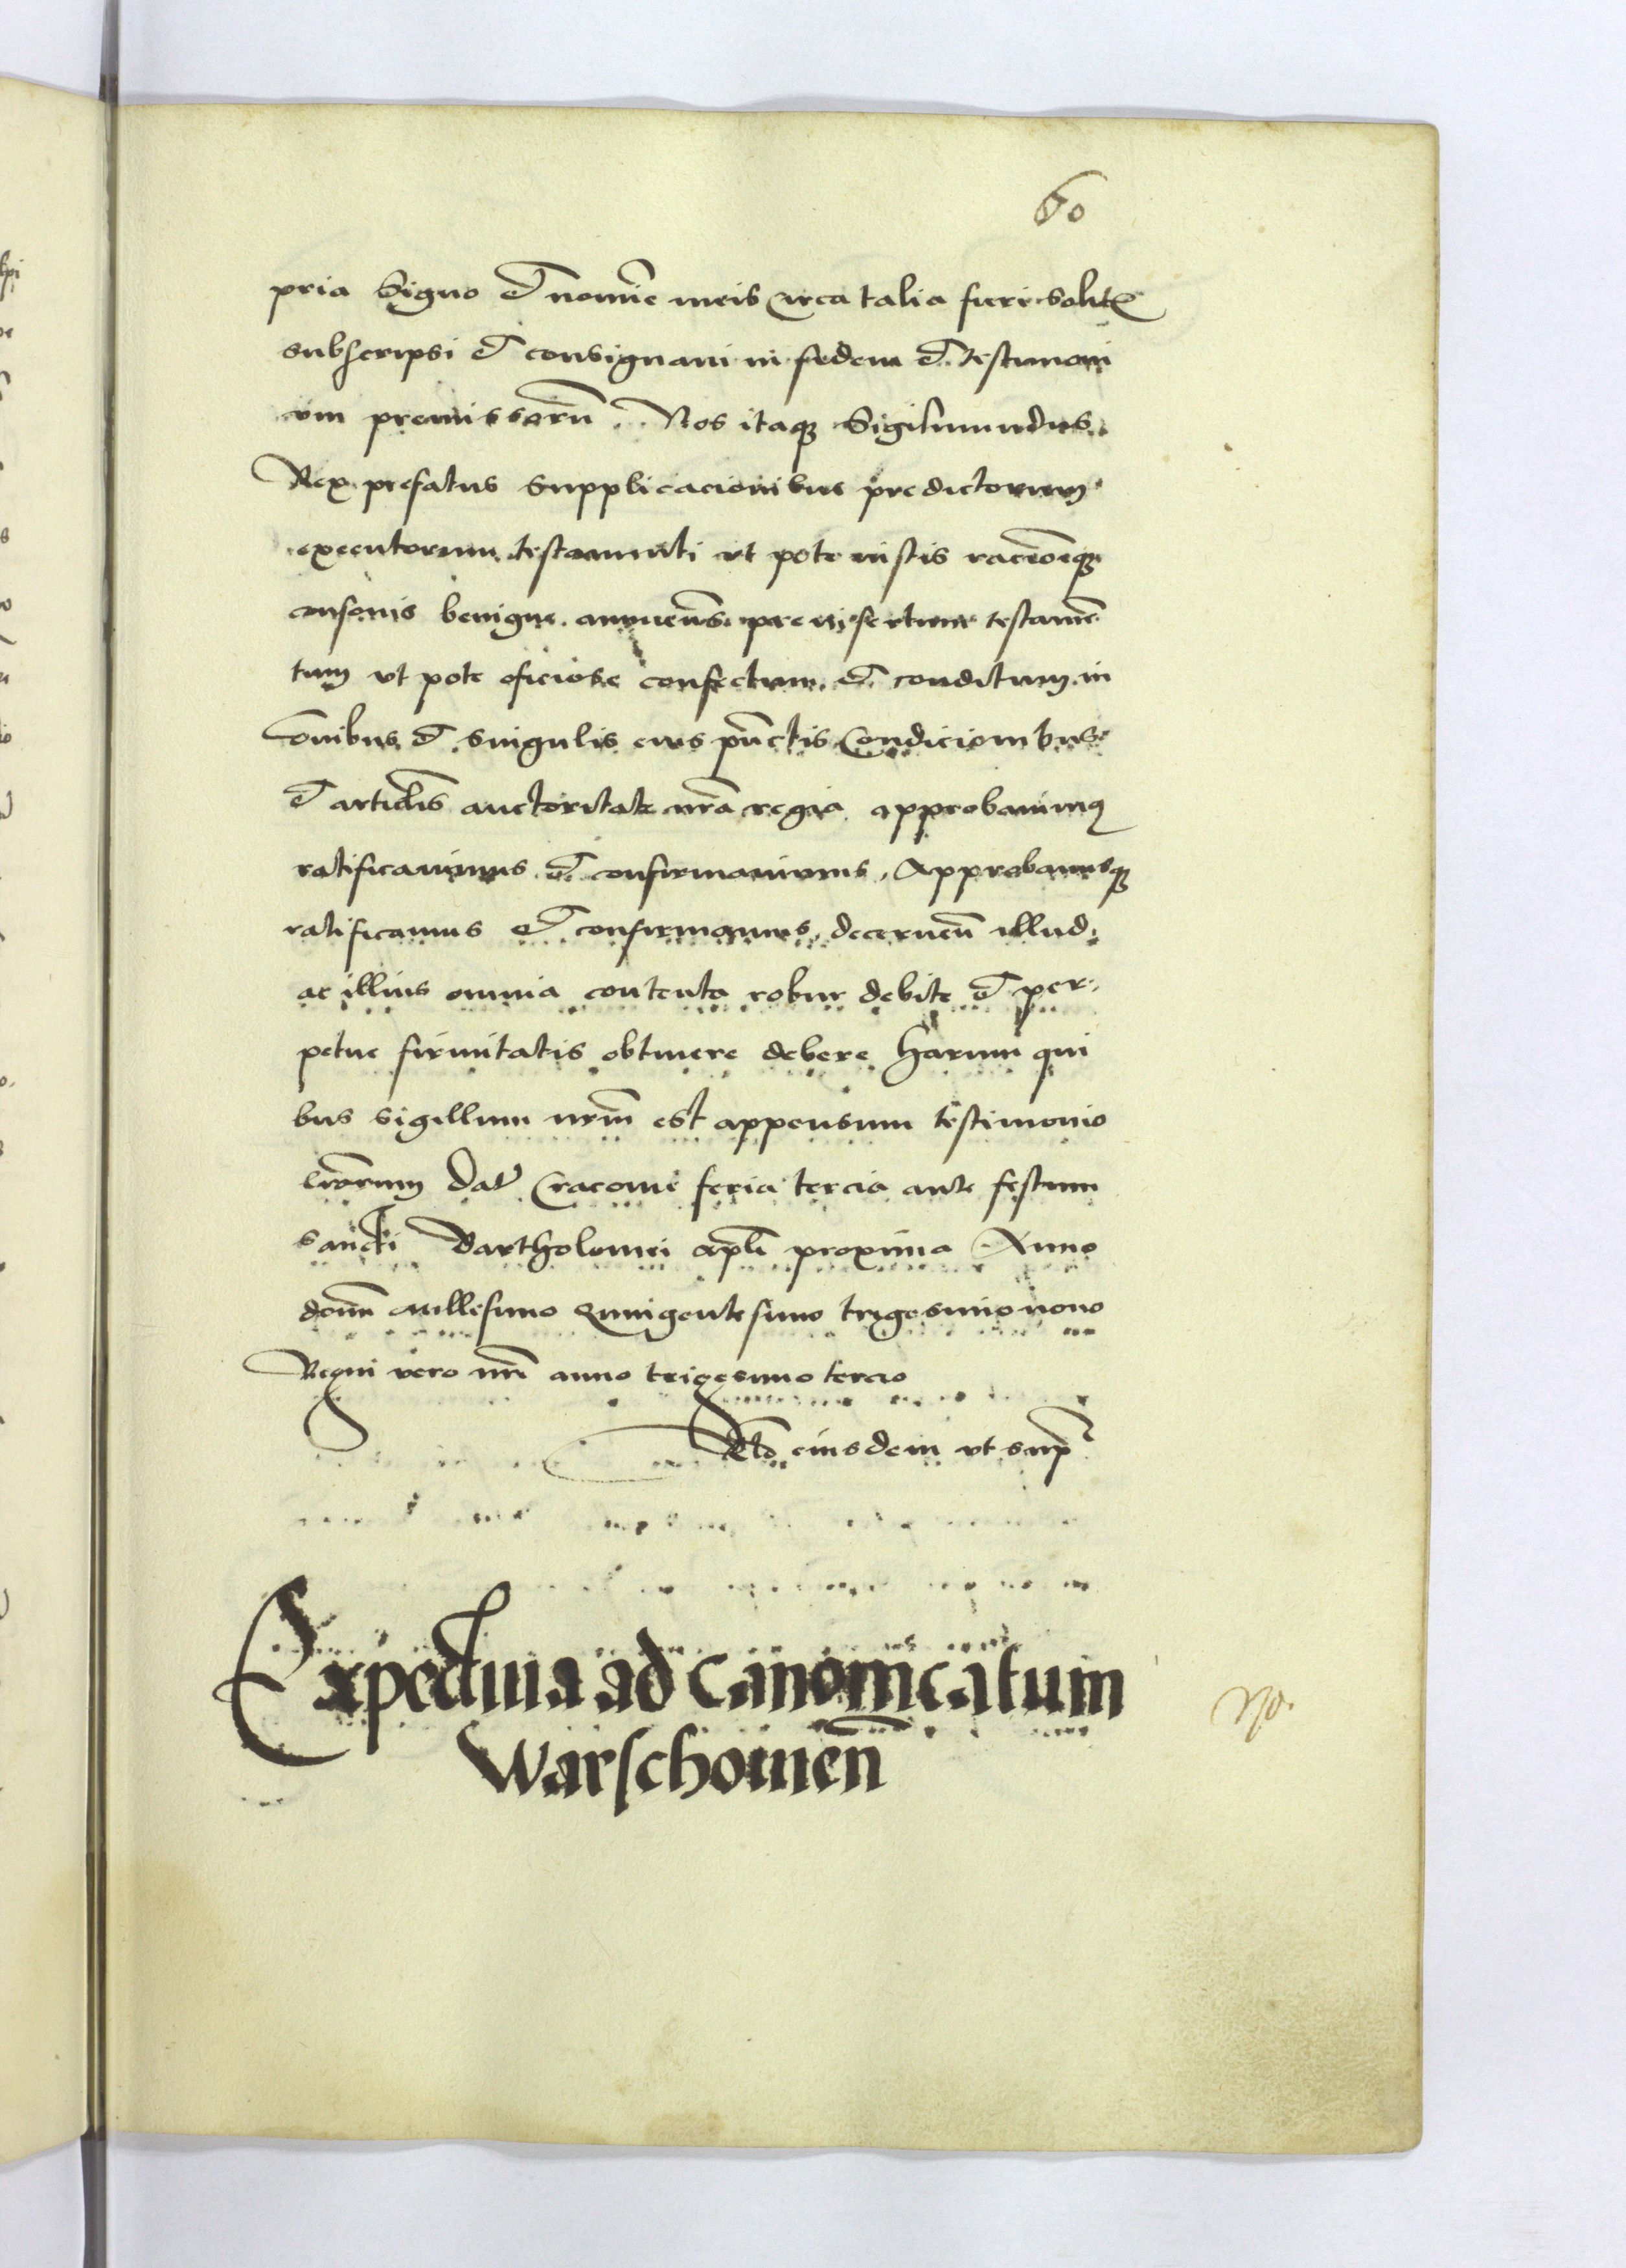 60
pria Signo et nomīe meis circa talia fieri solitꝭ
subscripsi et consignavi in fidem et testimoni
um premissorū. Nos itaqꝫ Sigismundus
Rex prefatus supplicacionibus predictorum
executorum testamenti ut pote iustis racēoīqꝫ
consonis benigne annuen̄s preinsertum testamē
tum ut pote oficiose confectum et conditum in
om̄ibus et singulis eius pūctis Condicionibus
et articłis auctoritate nrā regia approbavimꝰ
ratificavimus et confirmavimus, Approbamusqꝫ
ratificamus et confirmamus, decernen̄ illud
ac illius omnia contenta robur debite et per
petue firmitatis obtinere debere harum qui
bus sigillum nrm̄ est appensum testimonio
lr̄arum Dat̄ Cracovie feria tercia ante festum
sancti Bartholomei apłi proxima Anno
domī millesimo Quingentesimo trigesimo nono
Regni vero nrī anno trigesimo tercio
Rło eiusdem ut supꝰ
Expectiva ad Canonicatum
Warschovien̄